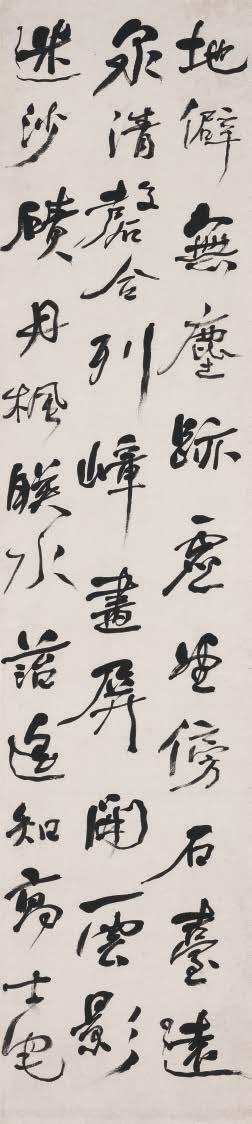 地僻無塵跡虛堂傍石臺遠
泉清磬合列嶂畫屏開雲影
迷沙磧丹楓暎水菭遙知高士宅